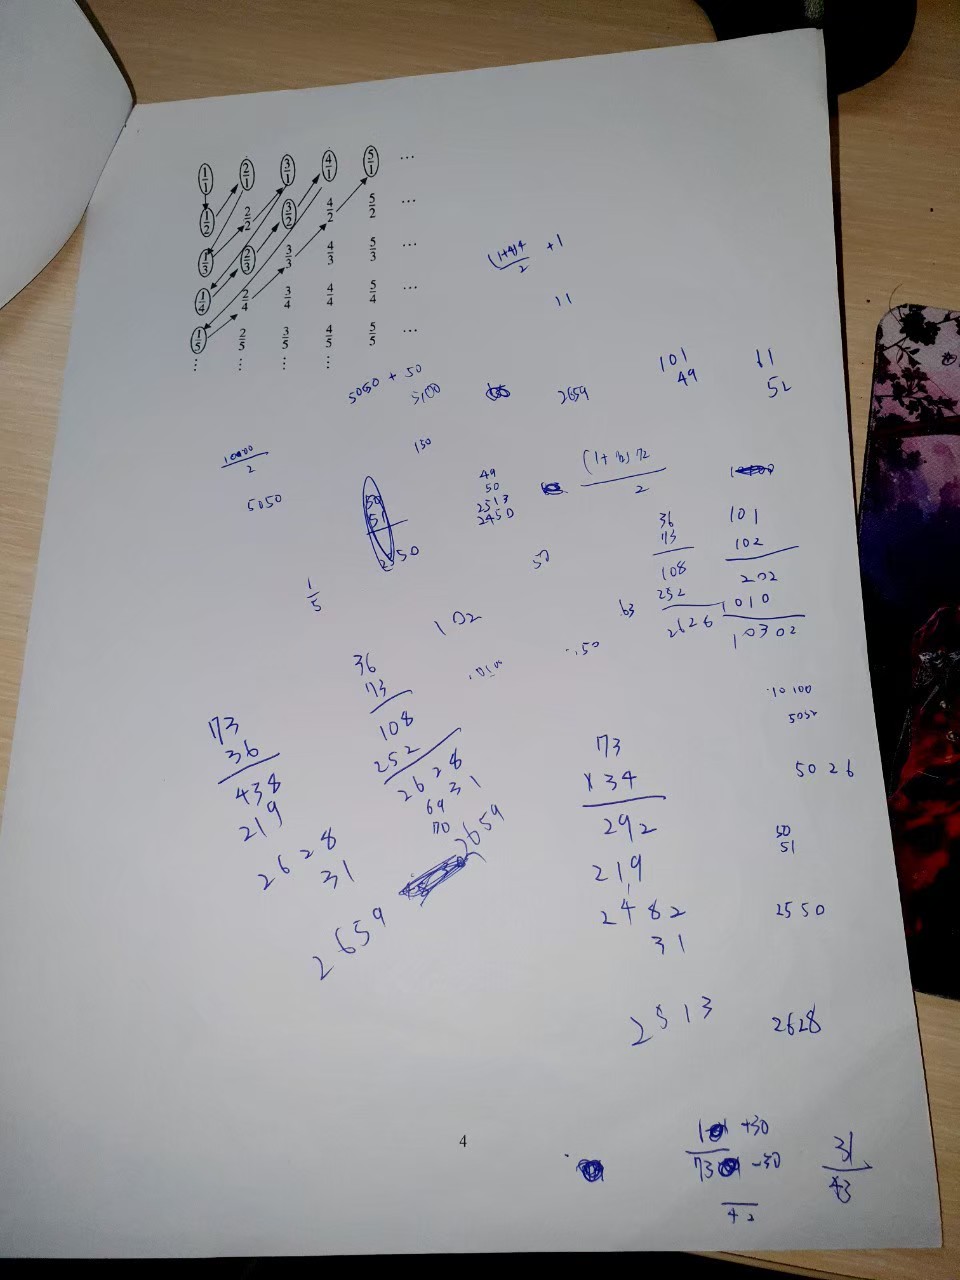 1/1 2/1 3/1 4/1 5/1 ...
1/2 2/2 3/2 4/2 5/2 ...
1/3 2/3 3/3 4/3 5/3 ...
1/4 2/4 3/4 4/4 5/4 ...
1/5 2/5 3/5 4/5 5/5 ...
⋮ ... ... ...
(1+4)4/2 +1
11
5050 + 50
5100
2659
101
49
11
52
10100/2
5050
150
50
51
2550
49
50
2513
2450
(1+72)72
2
36
73
108
252
2626
101
102
202
1010
10302
1/5
50
63
102
10100
50
73
36
438
219
2628
31
2659
36
73
108
252
2628
31
69
70
2659
73
×34
292
219
2482
31
2513
10100
5052
5026
50
51
2550
2628
4
1 +30
73 -30
42
31
43